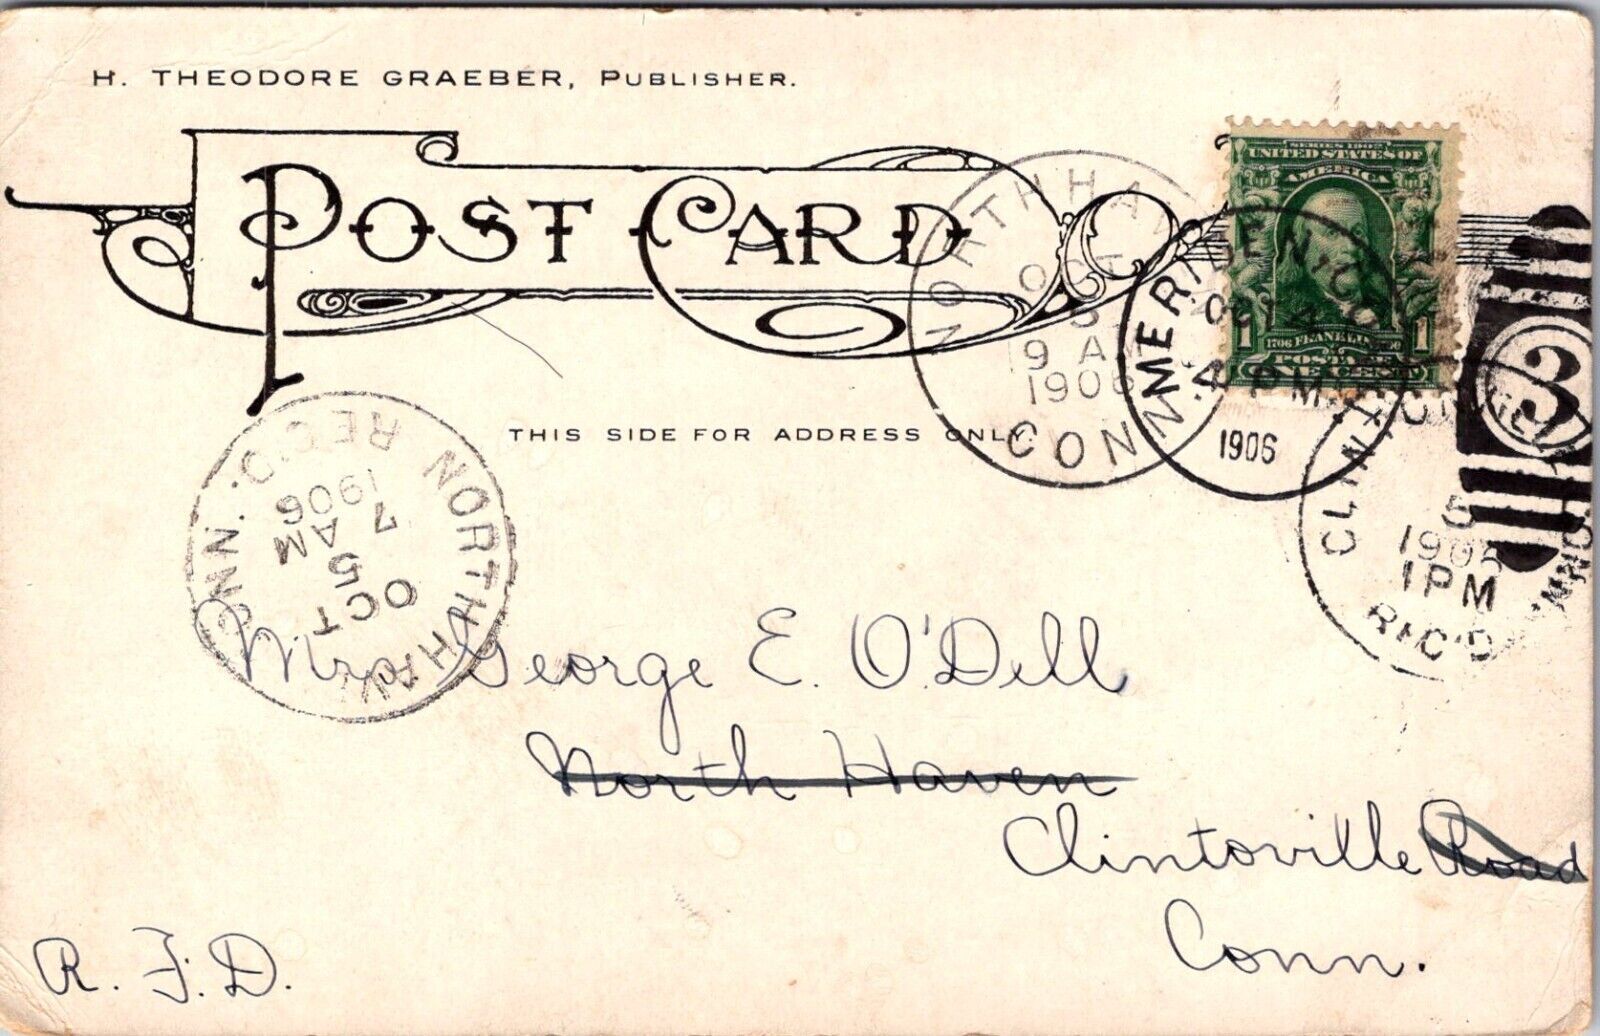 H. THEODORE GRAEBER, PUBLISHER.
POST CARD
THIS SIDE FOR ADDRESS ONLY.
SERIES 1902
UNITED STATES OF
AMERICA
1706 FRANKLIN 1790
1 POSTAGE 1
ONE CENT
NORTH HAV
OCT
5
9 A
1906
CONN
MERIDEN, CO
OCT 4
4 PM
1906
3
CLINTONVILLE
5
1906
1 PM
CONN.
REC'D
NORTH HAV
OCT
5
7 AM
1906
CONN.
REC'D.
Mrs George E. O'Dell
North Haven
Clintonville Road
Conn.
R. F. D.